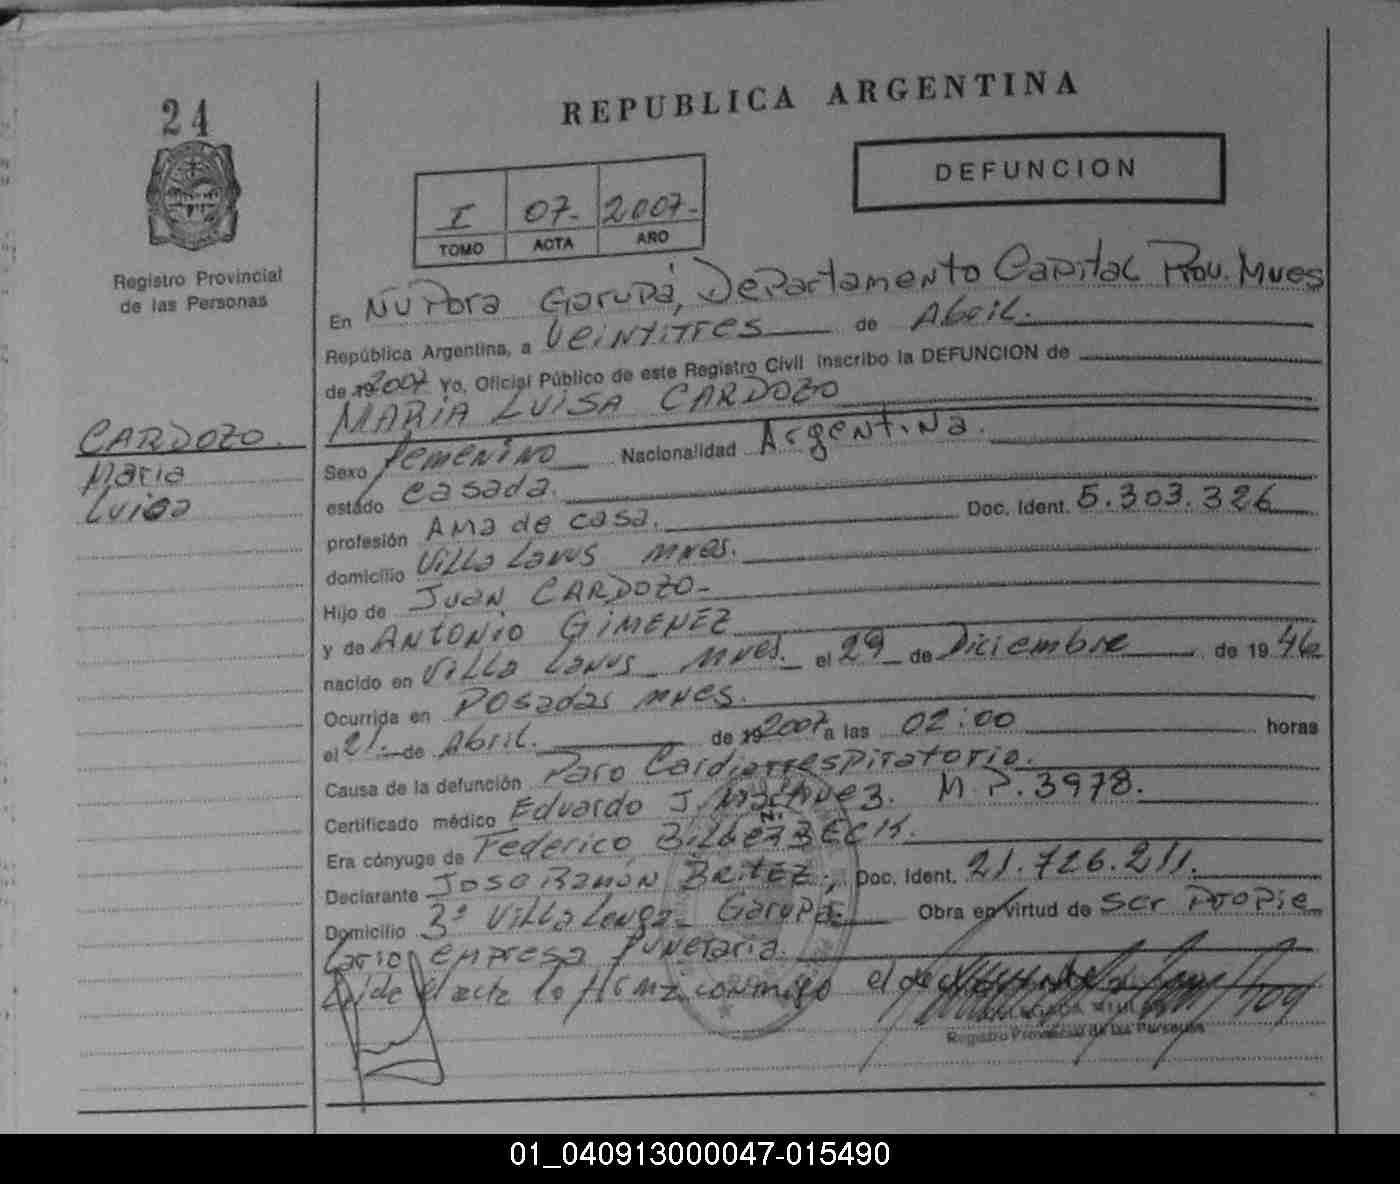 24
REPUBLICA ARGENTINA
DEFUNCION
I 07- 2007-
TOMO ACTA AÑO
Registro Provincial
de las Personas
En Ñu Pora Garupá, Departamento Capital Prov. Mnes
República Argentina, a Veintitres de Abril.
de 192007 Yo, Oficial Público de este Registro Civil inscribo la DEFUNCION de
MARIA LUISA CARDOZO
CARDOZO.
Maria
Luisa
Sexo femenino Nacionalidad Argentina.
estado casada.
profesión Ama de casa. Doc. Ident. 5.303.326
domicilio Villa Lanus mnes.
Hijo de Juan CARDOZO-
y de ANTONIO GIMENEZ
nacido en Villa Lanus mnes. el 29 de Diciembre de 1946
Ocurrida en Posadas mnes.
el 21. de Abril. de 192007 a las 02:00 horas
Causa de la defunción Paro Cardiorrespiratorio.
Certificado médico Eduardo J. M.P. 3978.
Era cónyuge de Federico
Declarante José Ramón BRITEZ., Doc. Ident. 21.726.211.
Domicilio 3ª Villa Longa- Garupá. Obra en virtud de ser propie
tario empresa funeraria.
Leide el acta la firma conmigo el
Registro Provincial de las Personas
01_040913000047-015490